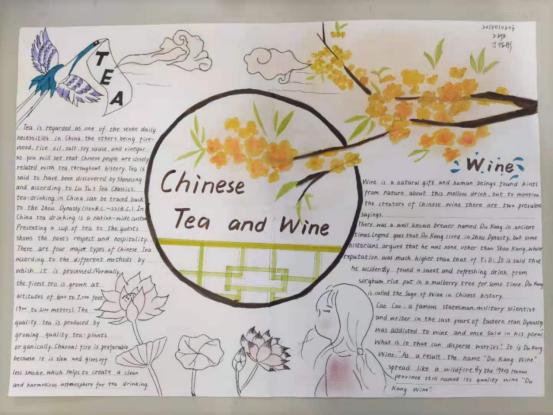 TEA
Chinese
Tea and Wine
Wine
Tea is regarded as one of the seven daily
necessities in China, the others being fire-
wood, rice, oil, salt, soy sauce, and vinegar
so you will see that Chinese people are closely
related with tea throughout history. Tea is
said to have been discovered by Shennong
and according to Lu Yu's Tea Classics,
tea-drinking in China can be traced back
to the Zhou Dynasty
China tea drinking is a nation-wide custom
Presenting a cup of tea to the guests
shows the host's respect and hospitality.
There are four major types of Chinese Tea
according to the different methods by
which it is processed. Normally
the finest tea is grown at
altitudes of
quality tea is produced by
growing quality tea plants
organically. Charcoal fire is preferable
because it is slow and gives off
less smoke, which helps to create a clean
and harmonious atmosphere for tea drinking.
Wine is a natural gift and human beings found hints
from nature about this mellow drink, but to mention
the creators of Chinese wine there are two prevalent
sayings.
There was a well known brewer named Du Kang in ancient
times. Legend goes that Du Kang lived in Zhou Dynasty, but some
historians argued that he was none other than Shao Kang, whose
reputation was much higher than that of Yi Di. It is said that
he accidently found a sweet and refreshing drink from
sorghum rice put in a mulberry tree for some time. Du Kang
is called the Sage of Wine in Chinese history.
Cao Cao, a famous statesman, military scientist
and writer in the last years of Eastern Han Dynasty
was addicted to wine and once said in his poem:
What is it that can disperse worries? It is Du Kang
Wine. As a result, the name "Du Kang Wine"
spread like a wildfire. By the
province still named its quality wine "Du
Kang Wine"